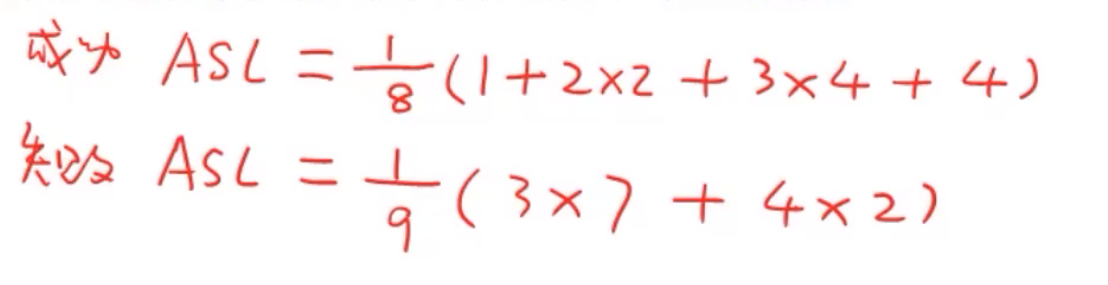 成功 ASL = 1/8 (1+2×2 + 3×4 + 4)
失败 ASL = 1/9 (3×7 + 4×2)